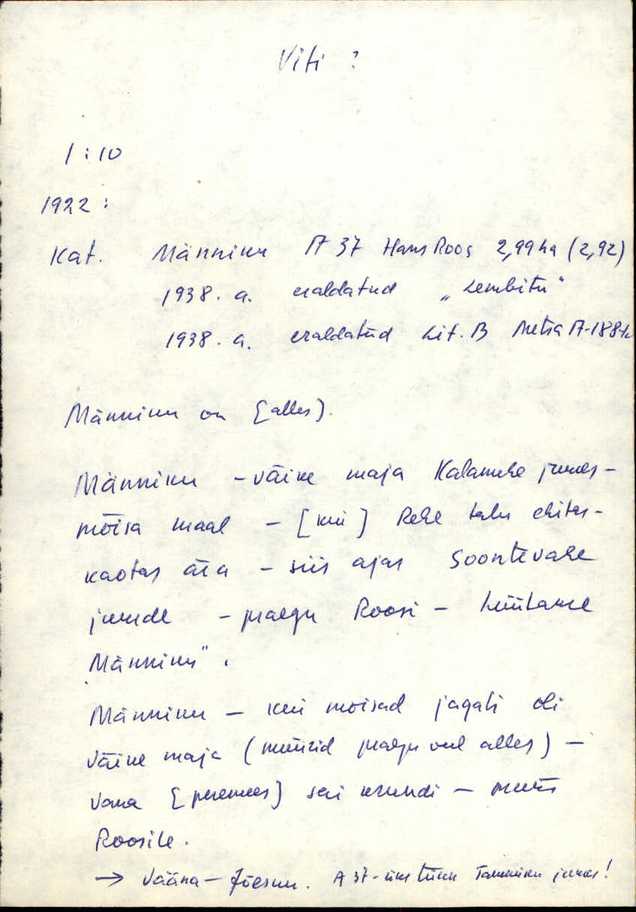 Viti ?
1:10
1922:
Kat. Männiku A 37 Hans Roos 2,99 ha (2,92)
1938. a. eraldatud „Lembitu“
1938. a. eraldatud Lit. B Metsa A-188
Männiku on [alles].
Männiku – väike maja Kalamehe juures –
mõisa maal – [kui] Rehe talu ehitas –
kaotas ära – siis ajas Soontevahe
juurde – praegu Roosi – hüütakse
„Männiku“.
Männiku – kui moisad jagati oli
väike maja (müürid praegu veel alles) –
vana [peremees] sai krundi – müüs
Roosile.
→ Vääna-Jõesuu. A 37 - üks tükk Tammiku juures!